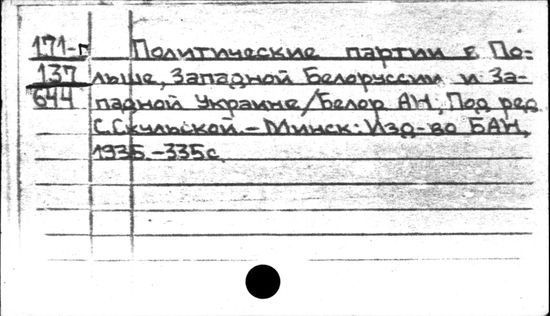 171-г Политические партии в По-
137 льше, Западной Белоруссии и За-
644 падной Украине/Белор АН, Под ред
С.Скульской.-Минск: Изд-во БАН,
1935.-335с.